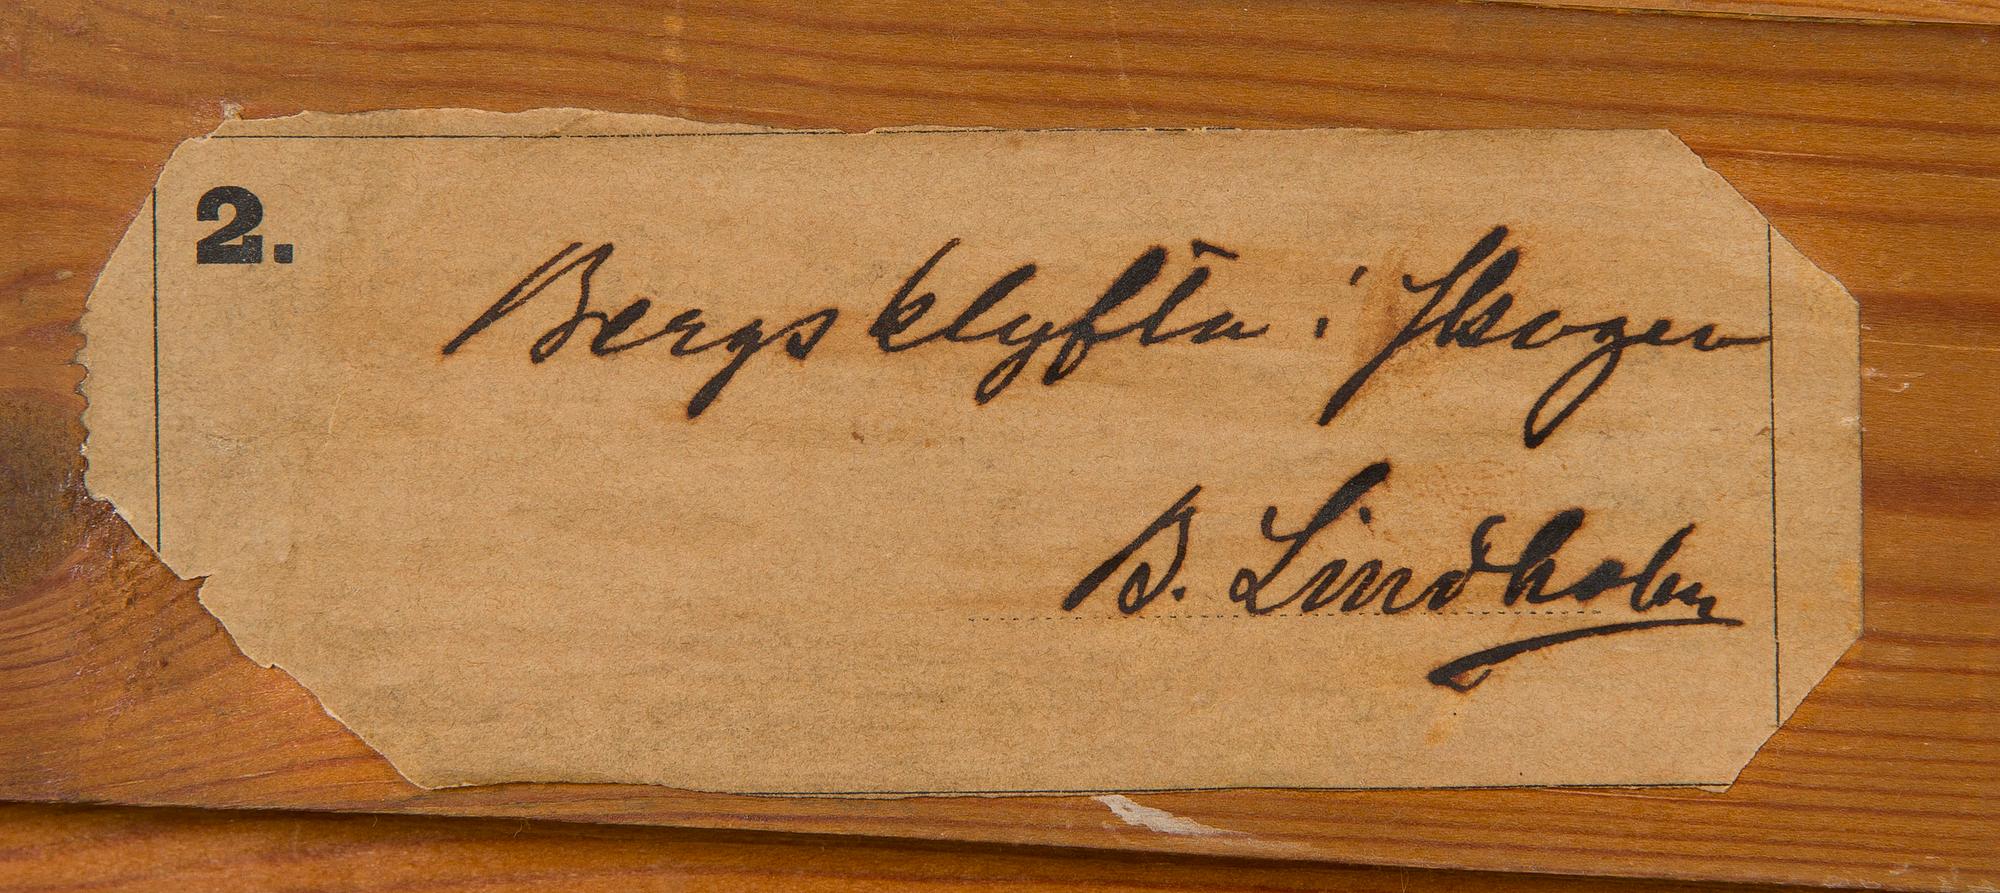 2.
Bergsklyfta i Skogen
B. Lindholm